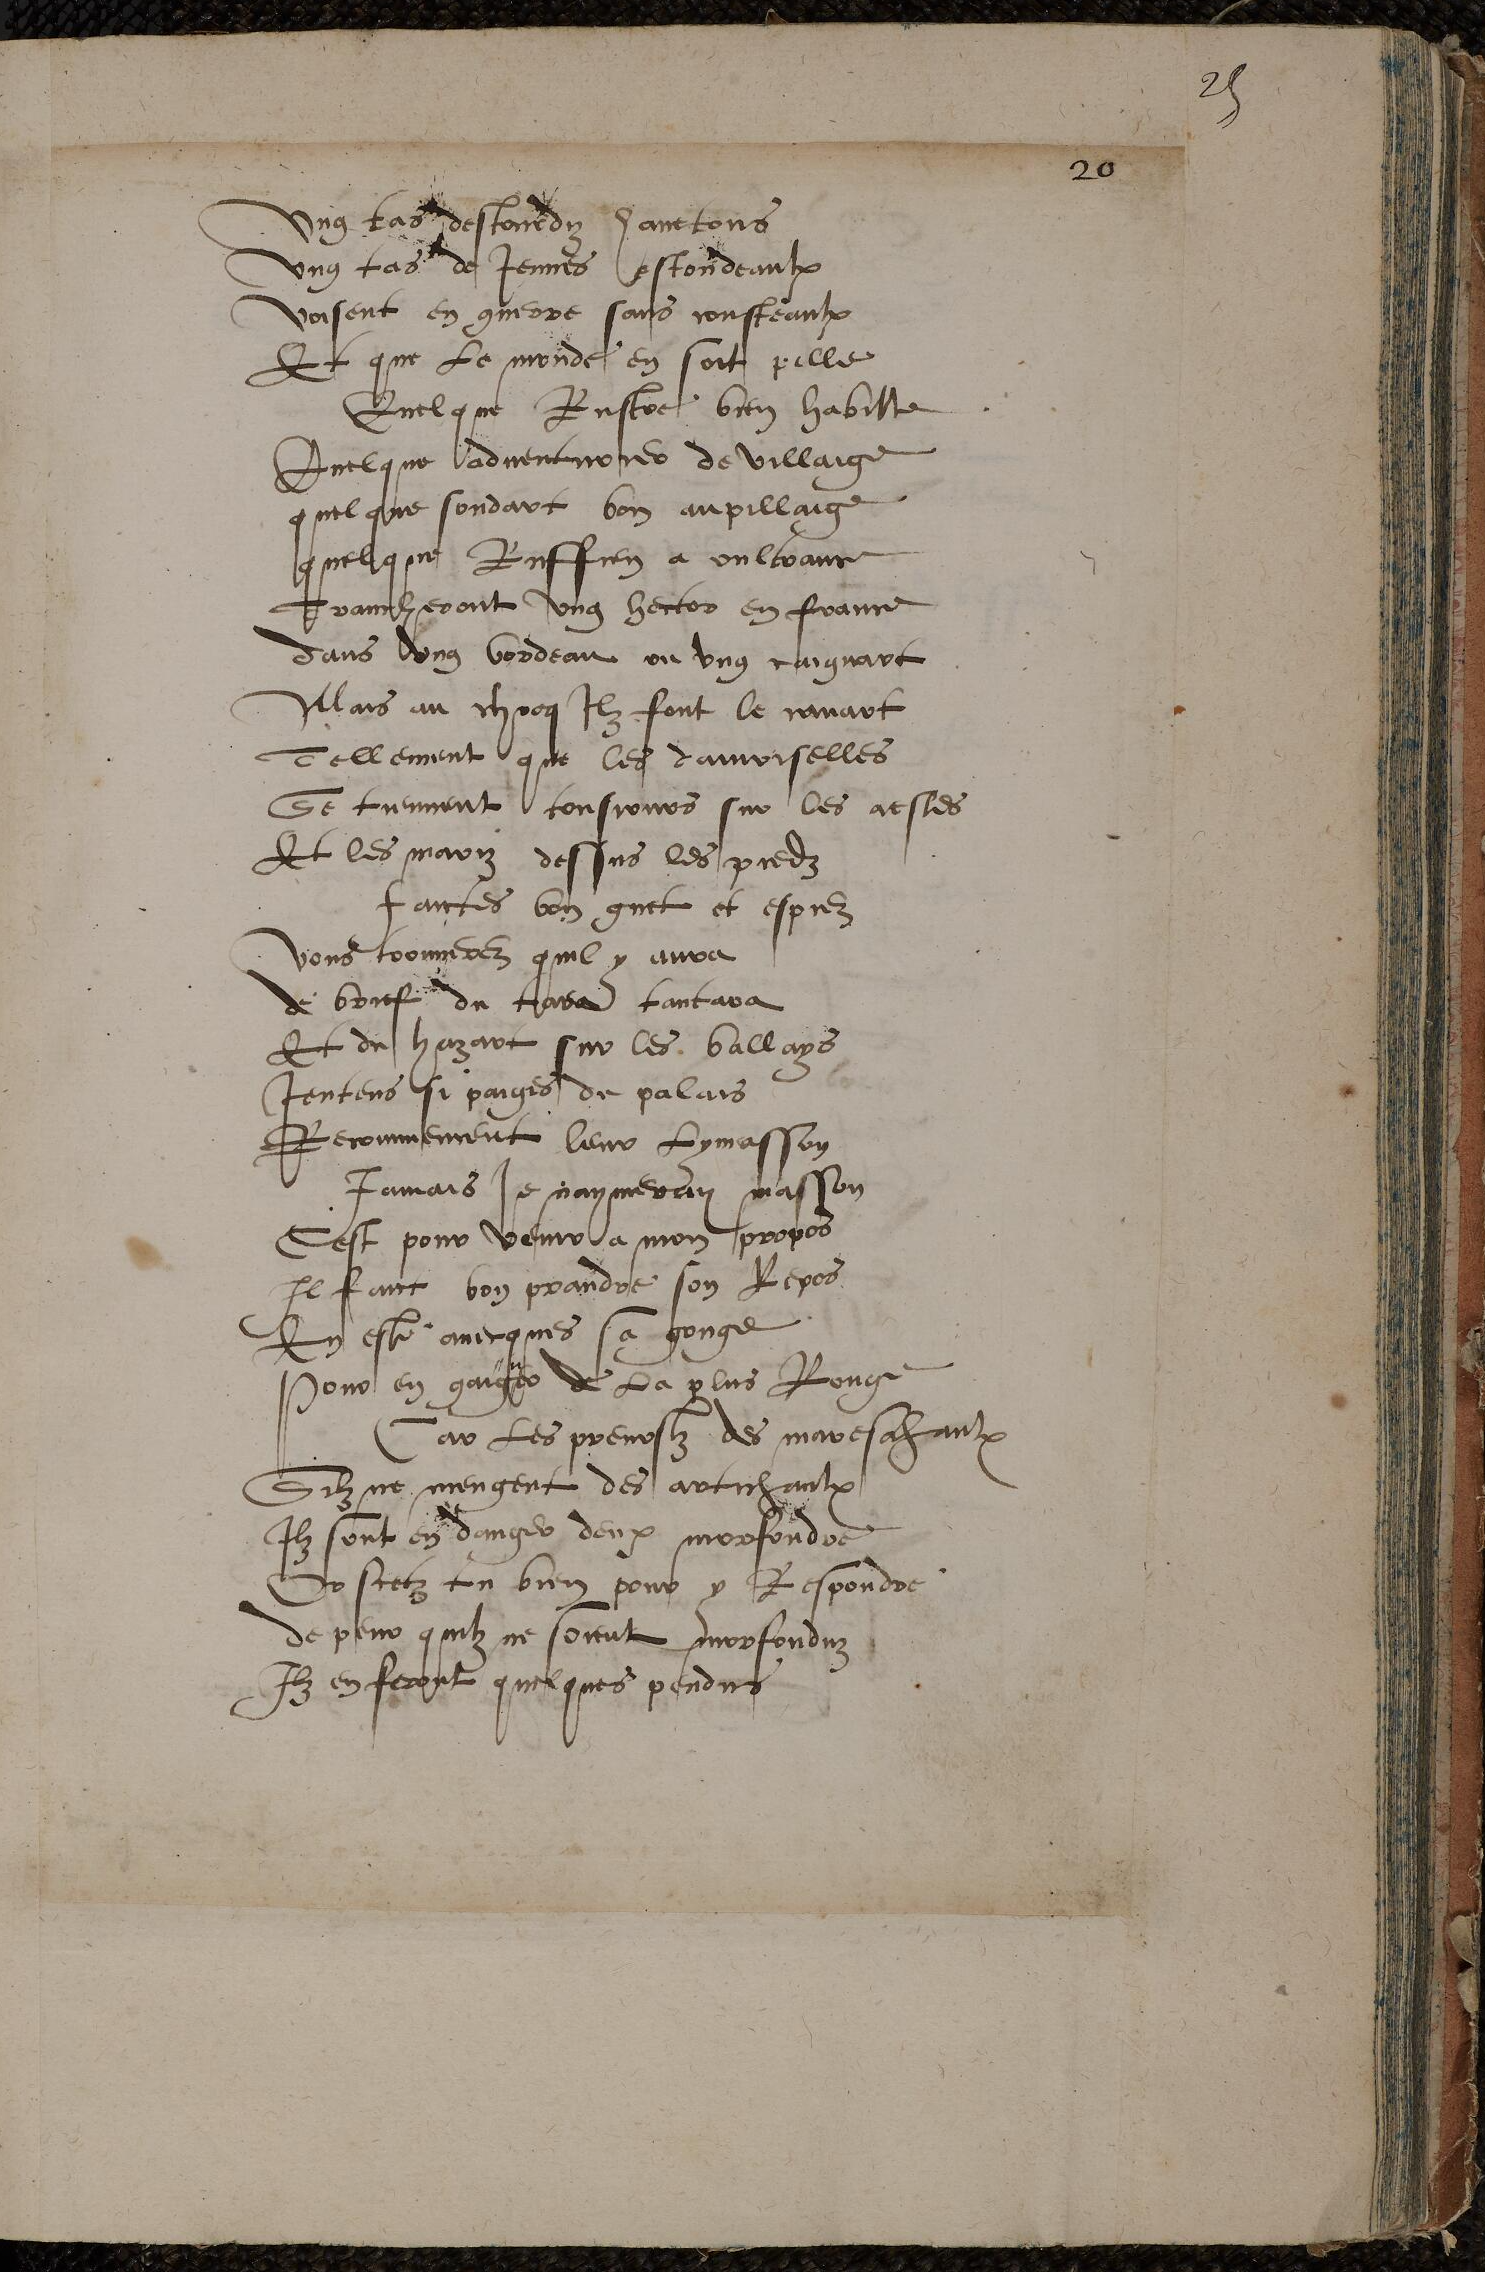 25
20
Ung tas destourdiz hanetons
Ung tas de Jeunes estondeaulx
Voisent en guerre sans cousteaulx
Et que Le monde en soit pille
Quelque Rustre bien habille
Quelque adventurier de villaige
quelque soudart bon au pillaige
quelque Ruffien a oultrance
Trancheront Ung hector en france
dans ung bordeau ou ung caignart
Mais au chocq Ilz font le canart
Tellement que les damoiselles
Se tiennent tousjours sur les aesles
Et les mariz dessus les piedz
faictes bon guet et espiez
Vous trouverez quil y aura
de brief du tara tantara
Et du hazart sur les ballays
Jentens si paiges de palais
Recommencent leur Lymasson
Jamais Je naymeray masson
Cest pour venir a mon propos
Il faict bon prandre son Repos
En esté avecques sa gouge
Pour en gaigner de La plus Rouge
Car Les prevostz des mareschaulx
Silz ne mengent des artichaulx
Ilz sont en danger deulx morfondre
Or scetz tu bien pour y Respondre
de peur quilz ne soient morfonduz
Ilz en feront quelques pendus